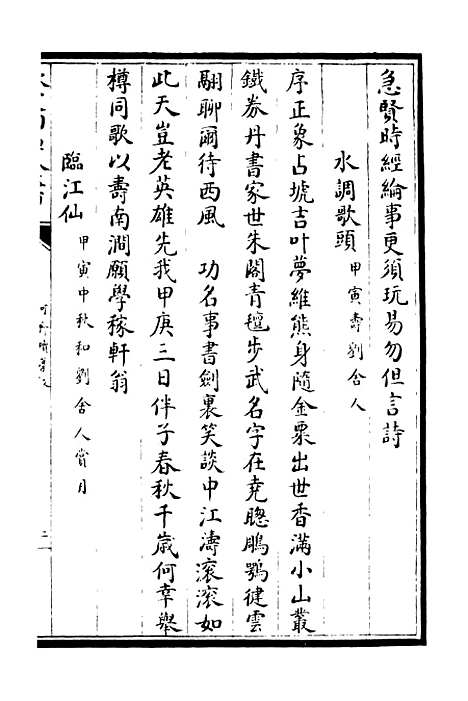 急賢時經綸事更須玩易勿但言詩
水調歌頭 甲寅壽劉舍人
序正象占虩吉叶夢維熊身隨金粟出世香滿小山叢
鐵券丹書家世朱閣青氊步武名字在堯聰鵬鶚健雲
翮聊爾待西風 功名事書劍裏笑談中江濤滚滚如
此天豈老英雄先我甲庚三日伴子春秋千歲何幸舉
樽同歌以壽南澗願學稼軒翁
臨江仙 甲寅中秋和劉舍人賞月